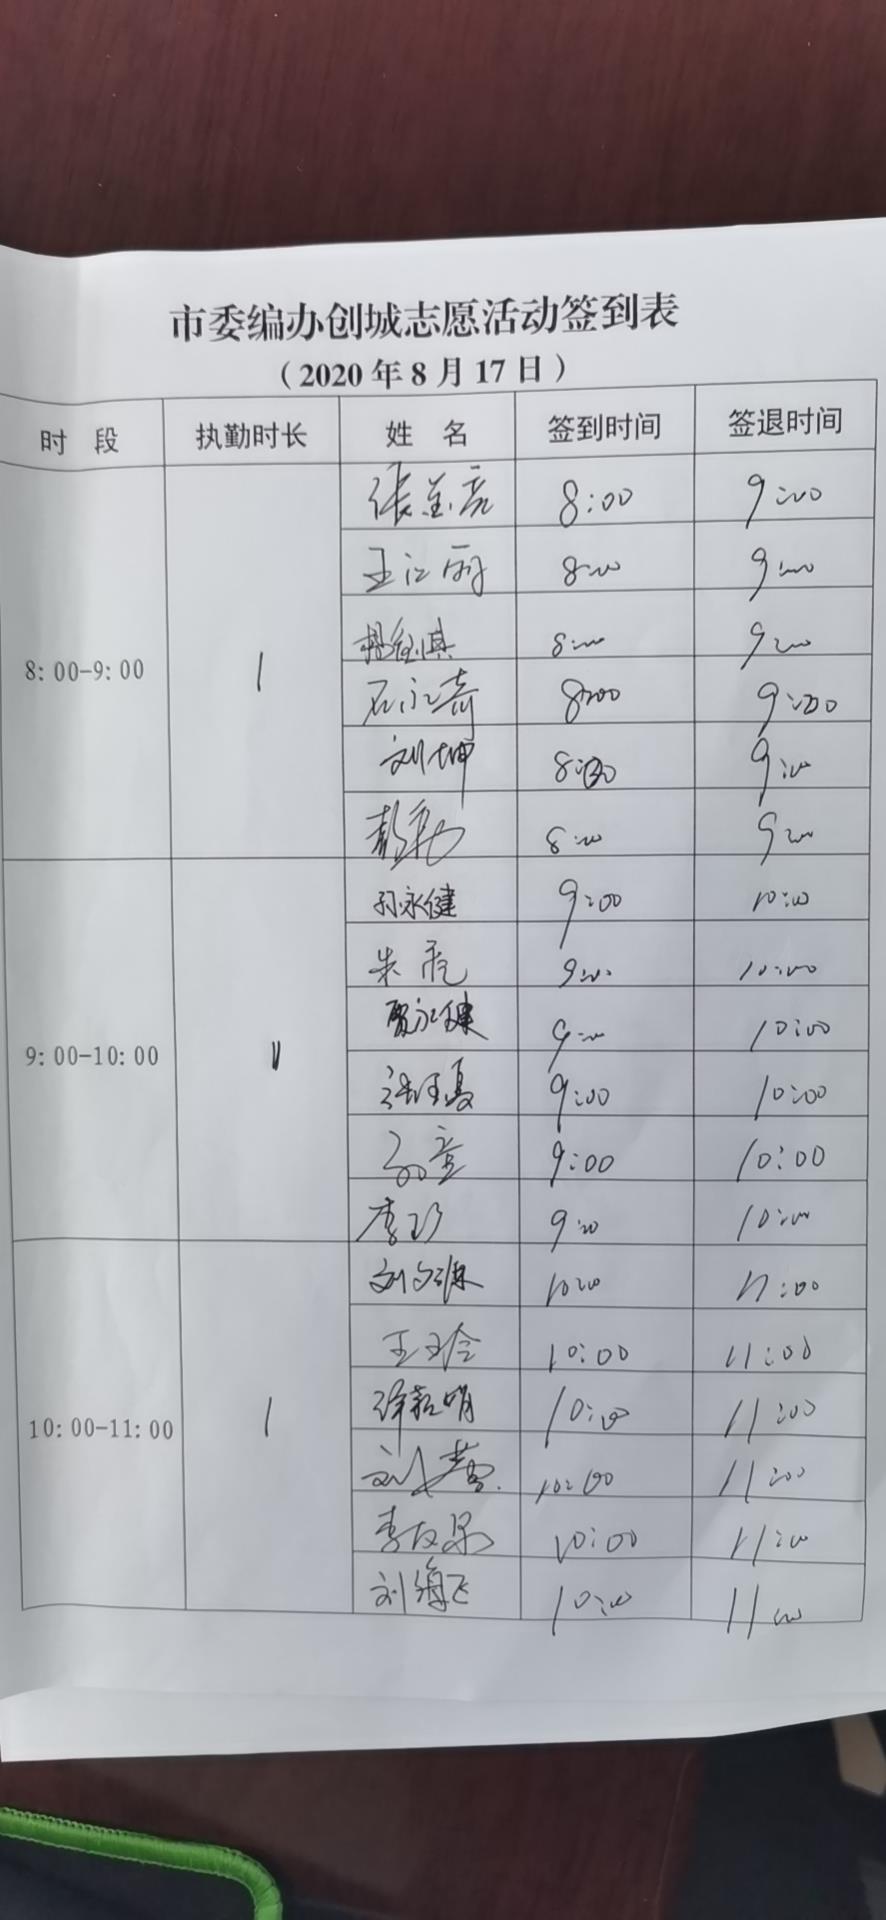 市委编办创城志愿活动签到表
（2020年8月17日）
时 段 执勤时长 姓 名 签到时间 签退时间
8:00-9:00 1
8:00 9:00
王江丽 8:00 9:00
8:00 9:00
石永奇 8:00 9:00
刘坤 8:00 9:00
8:00 9:00
9:00-10:00 1
孙永健 9:00 10:00
朱亮 9:00 10:00
贾永健 9:00 10:00
9:00 10:00
孙童 9:00 10:00
李珍 9:00 10:00
10:00-11:00 1
刘文源 10:00 11:00
王玉玲 10:00 11:00
10:00 11:00
刘莹 10:00 11:00
李友果 10:00 11:00
刘海飞 10:00 11:00